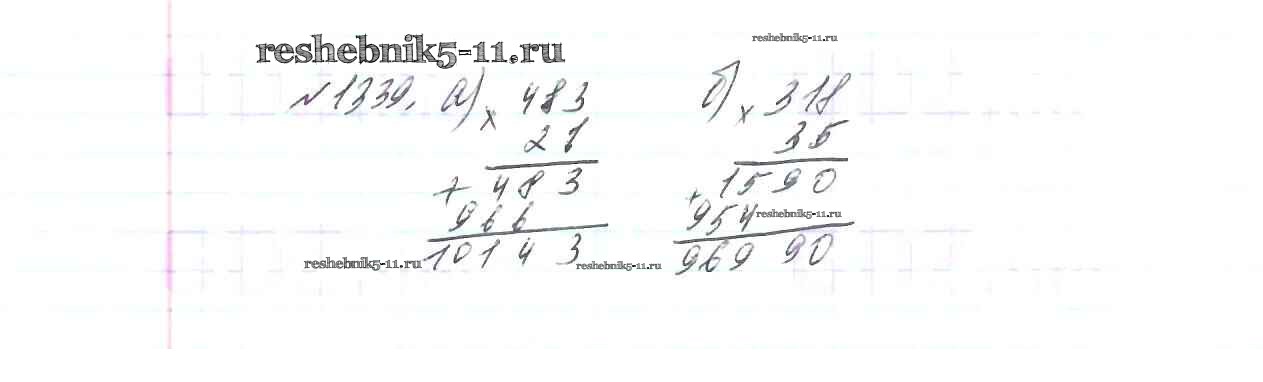 reshebnik5-11.ru
reshebnik5-11.ru
№1339. а) × 483
21
+ 483
966
10143
б) × 318
35
+ 1590
954
96990
reshebnik5-11.ru
reshebnik5-11.ru
reshebnik5-11.ru